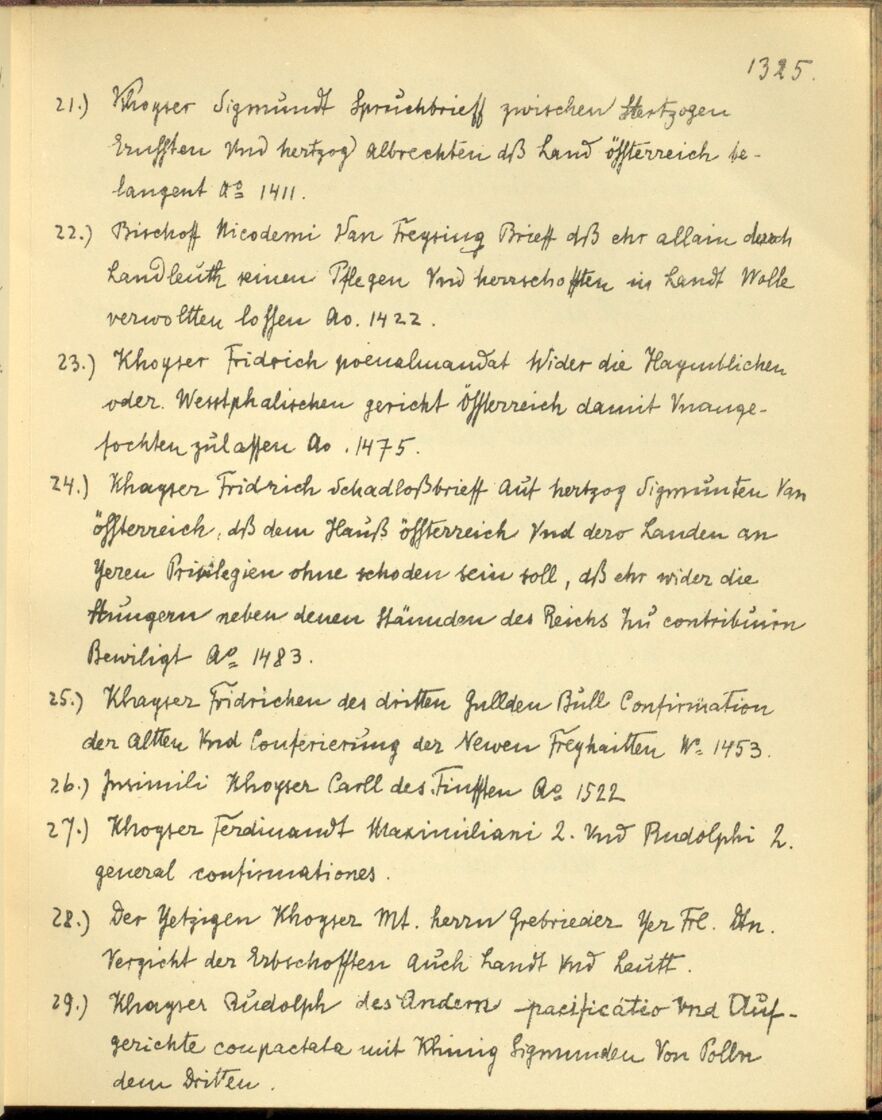 1325.
21.) Khayser Sigmundt Spruchbrieff zwischen Hertzogen
Ernssten Vnd hertzog Albrechten dß Land össterreich be-
langent Ao 1411.
22.) Bischoff Nicodemi Van Freysing Brieff dß ehr allain durch
Landleuth seinen Pflegen Vnd herrschafften in Landt Wolle
verwaltten lassen Ao. 1422.
23.) Khayser Fridrich poenalmandat Wider die Haymblichen
oder. Westphalischen gericht Össterreich damit Vnange-
fochten zulassen Ao. 1475.
24.) Khayser Fridrich Schadloßbrieff Auf hertzog Sigmunten Van
össterreich, dß dem Hauß össterreich Vnd dero Landen an
Yeren Privilegien ohne schaden sein soll, dß ehr wider die
Hungern neben denen Stännden des Reichs Zu contribuirn
Bewiligt Ao 1483.
25.) Khayser Fridrichen des dritten Gullden Bull Confirmation
der Altten Vnd Conferierung der Newen Freyhaitten 1453.
26.) Insimili Khayser Carll des Finfften Ao 1522
27.) Khayser Ferdinandt Maximiliani 2. Vnd Rudolphi 2.
general confirmationes.
28.) Der Yetzigen Khayser Mt. herrn Grebrieder Yer Frl. Dtn.
Verzicht der Erbschafften Auch Landt Vnd Leutt.
29.) Khayser Rudolph des Andern pacificatio Vnd Auf-
gerichte conpactata mit Khinig Sigmunden Von Polln
dem Dritten.